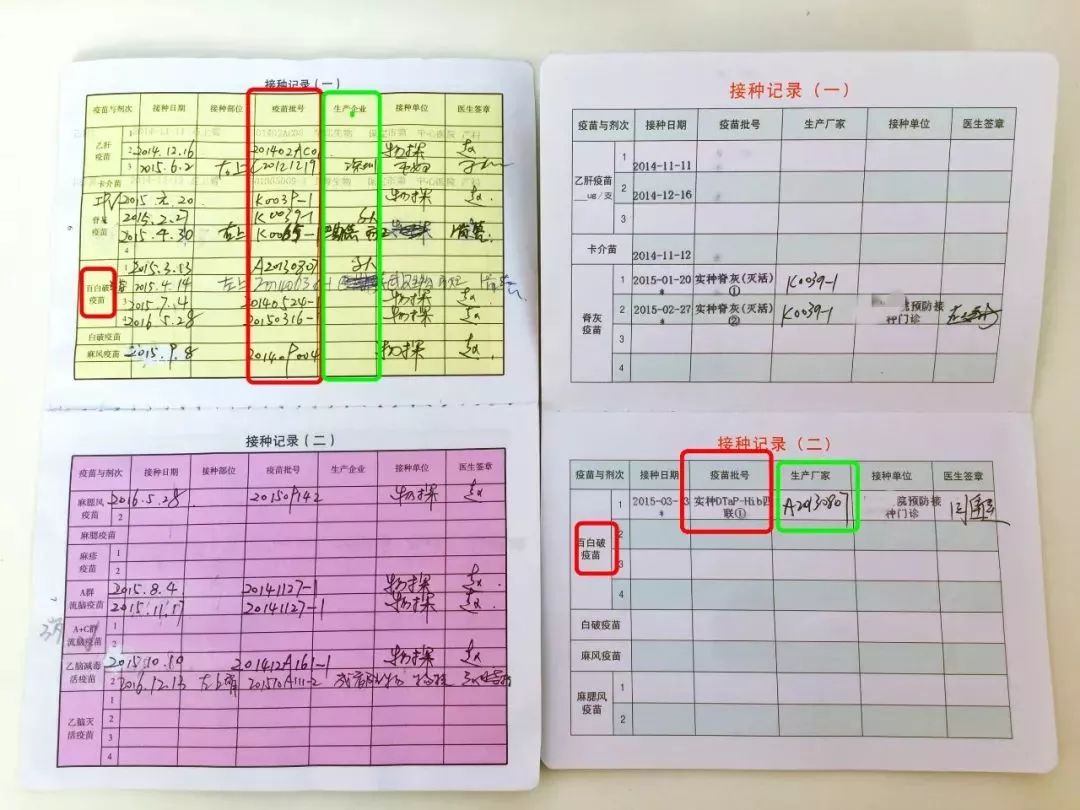 接种记录（一）
疫苗与剂次 接种日期 接种部位 疫苗批号 生产企业 接种单位 医生签章
乙肝疫苗 1
2 2014.12.16 201402AC01 物探 赵
3 2015.6.2 右上 C20121219 深圳
卡介苗
IPV 2015.元.20 K0039-1 物探 赵
脊灰疫苗 2015.2.27 K0039-1
2015.4.30 左上
4
百白破疫苗 1 2015.3.13 A20130807
2015.4.14 左上
3 2015.7.4 20140524-1 物探 赵
2016.5.28 20150316-1 物探 赵
白破疫苗
麻风疫苗 2015.9.8 201409004 物探 赵
接种记录（二）
疫苗与剂次 接种日期 接种部位 疫苗批号 生产企业 接种单位 医生签章
麻腮风疫苗 2016.5.28 20150942 物探 赵
2
麻腮疫苗
麻疹疫苗 1
2
A群流脑疫苗 2015.8.4 20141127-1 物探 赵
2015.11.17 20141127-1 物探 赵
A+C群流脑疫苗 1
2
乙脑减毒活疫苗 2015.10.19 201412A161-1 物探 赵
2 2016.12.13 201510A111-2 成都生物 物探
乙脑灭活疫苗 1
2
3
4
接种记录（一）
疫苗与剂次 接种日期 疫苗批号 生产厂家 接种单位 医生签章
乙肝疫苗 __ug/支 1 2014-11-11
2 2014-12-16
3
卡介苗 2014-11-12
脊灰疫苗 1 2015-01-20 * 实种脊灰(灭活)① K0039-1
2 2015-02-27 * 实种脊灰(灭活)② K0039-1 院预防接种门诊
3
4
接种记录（二）
疫苗与剂次 接种日期 疫苗批号 生产厂家 接种单位 医生签章
百白破疫苗 1 2015-03-13 * 实种DTaP-Hib四联① A20130807 院预防接种门诊
2
3
4
白破疫苗
麻风疫苗
麻腮风疫苗 1
2